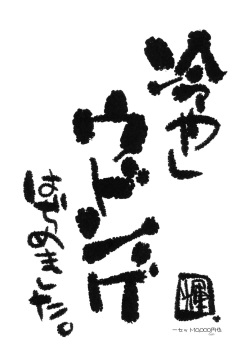 冷やし
ウドンゲ
はぢめました。